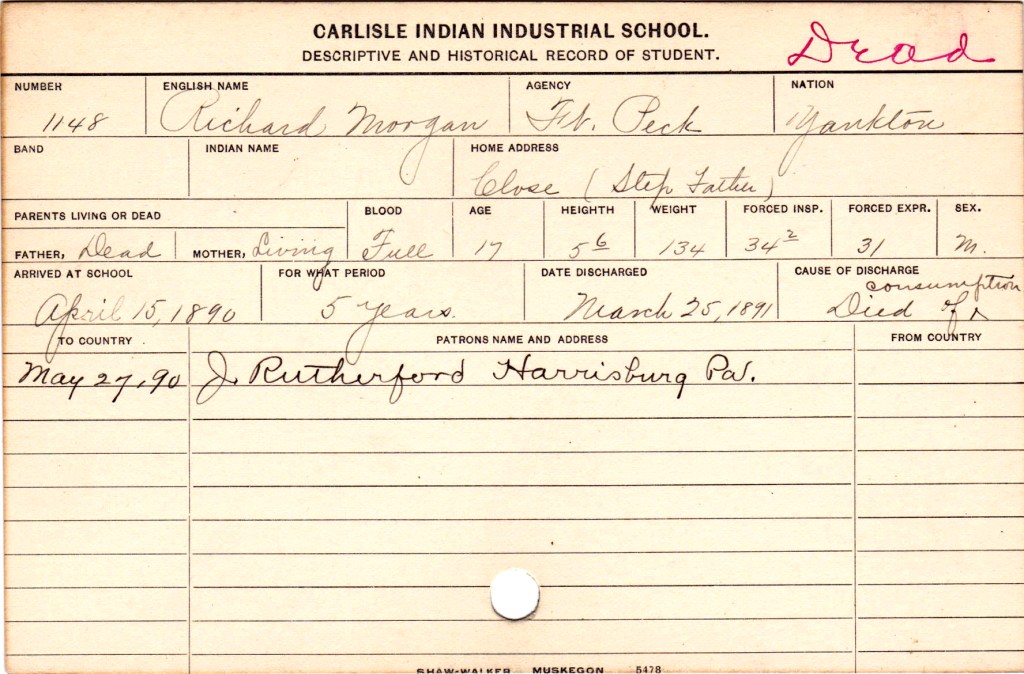 CARLISLE INDIAN INDUSTRIAL SCHOOL.
DESCRIPTIVE AND HISTORICAL RECORD OF STUDENT.
Dead
NUMBER ENGLISH NAME AGENCY NATION
1148 Richard Morgan Ft. Peck Yankton
BAND INDIAN NAME HOME ADDRESS
Close (Step Father)
PARENTS LIVING OR DEAD BLOOD AGE HEIGHTH WEIGHT FORCED INSP. FORCED EXPR. SEX.
FATHER, Dead MOTHER, Living Full 17 5 6 134 34 2 31 M.
ARRIVED AT SCHOOL FOR WHAT PERIOD DATE DISCHARGED CAUSE OF DISCHARGE
consumption
April 15, 1890 5 years. March 25, 1891 Died of
TO COUNTRY PATRONS NAME AND ADDRESS FROM COUNTRY
May 27, 90 J. Rutherford Harrisburg Pa.
SHAW-WALKER MUSKEGON 5478